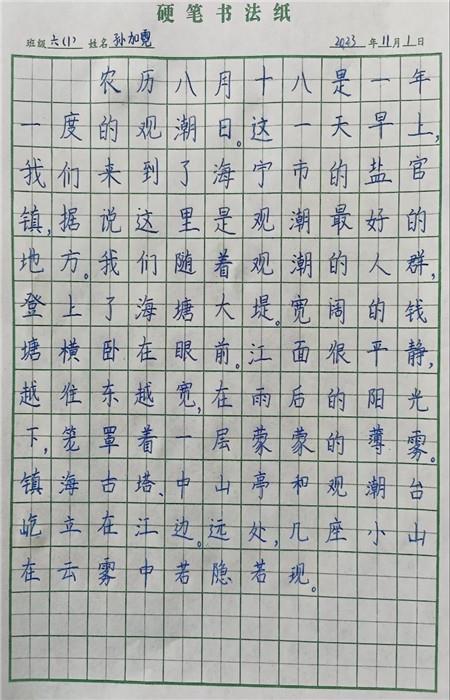 硬笔书法纸
班级 六(1) 姓名 孙加霓 2023 年 11 月 1 日
农历八月十八是一年
一度的观潮日。这一天早上,
我们来到了海宁市的盐官
镇,据说这里是观潮最好的
地方。我们随着观潮的人群,
登上了海塘大堤。宽阔的钱
塘横卧在眼前。江面很平静,
越往东越宽,在雨后的阳光
下,笼罩着一层蒙蒙的薄雾。
镇海古塔、中山亭和观潮台
屹立在江边。远处,几座小山
在云雾中若隐若现。